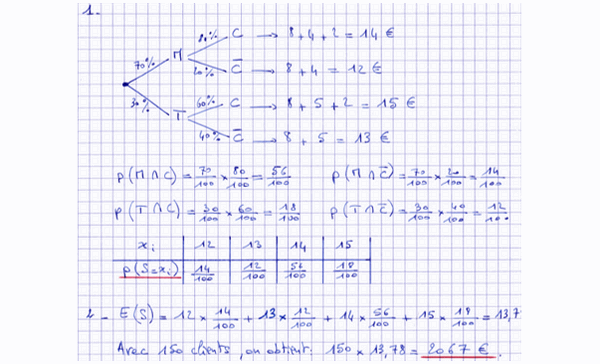 1.
80% C → 8 + 4 + 2 = 14 €
70% M
20% C̅ → 8 + 4 = 12 €
60% C → 8 + 5 + 2 = 15 €
30% T
40% C̅ → 8 + 5 = 13 €
p(M ∩ C) = 70/100 × 80/100 = 56/100 p(M ∩ C̅) = 70/100 × 20/100 = 14/100
p(T ∩ C) = 30/100 × 60/100 = 18/100 p(T ∩ C̅) = 30/100 × 40/100 = 12/100
xi 12 13 14 15
p(S=xi) 14/100 12/100 56/100 18/100
2 - E(S) = 12 × 14/100 + 13 × 12/100 + 14 × 56/100 + 15 × 18/100 = 13,7
Avec 150 clients, on obtient: 150 × 13,78 = 2067 €.